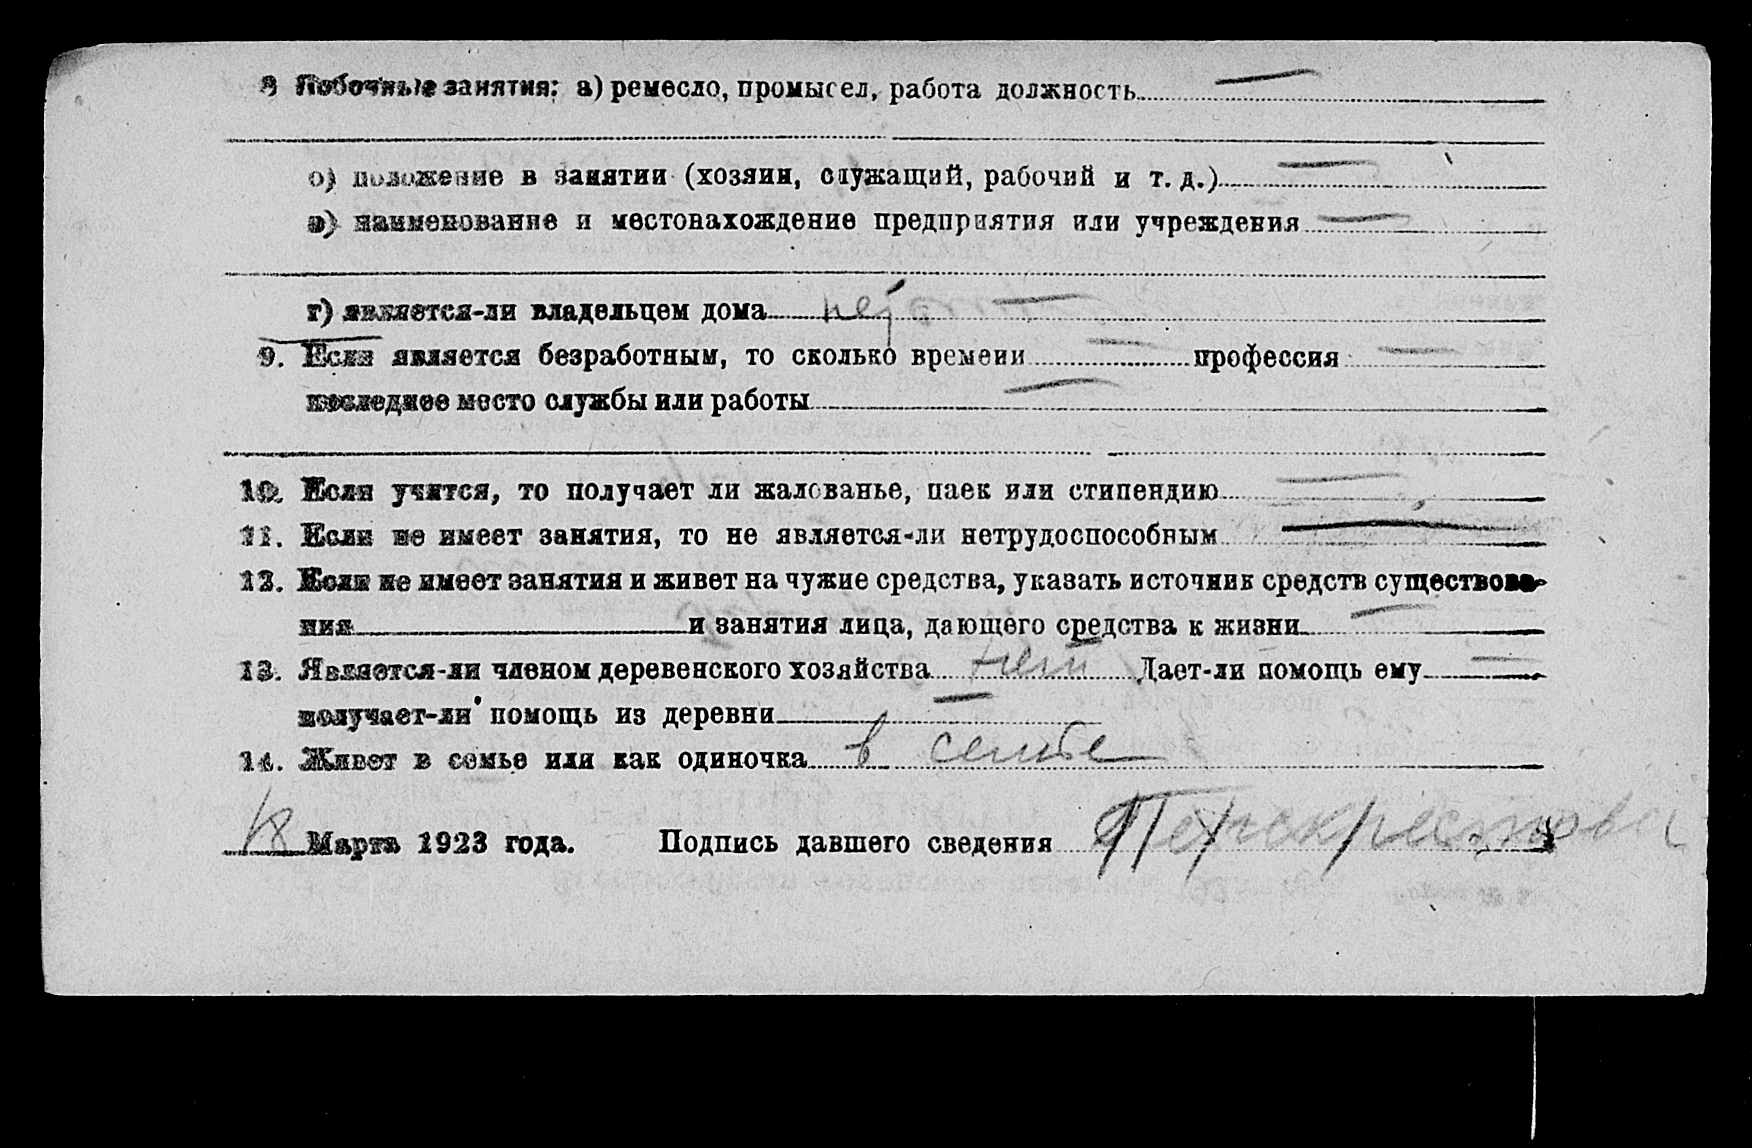 8 Побочные занятия: а) ремесло, промысел, работа должность —
б) положение в занятии (хозяин, служащий, рабочий и т. д.) —
в) наименование и местонахождение предприятия или учреждения —
г) является-ли владельцем дома —
9. Если является безработным, то сколько времени — профессия —
последнее место службы или работы —
10. Если учится, то получает ли жалованье, паек или стипендию —
11. Если не имеет занятия, то не является-ли нетрудоспособным —
12. Если не имеет занятия и живет на чужие средства, указать источник средств существова-
ния и занятия лица, дающего средства к жизни —
13. Является-ли членом деревенского хозяйства нет Дает-ли помощь ему —
получает-ли помощь из деревни —
14. Живет в семье или как одиночка в семье
18 Марта 1923 года. Подпись давшего сведения